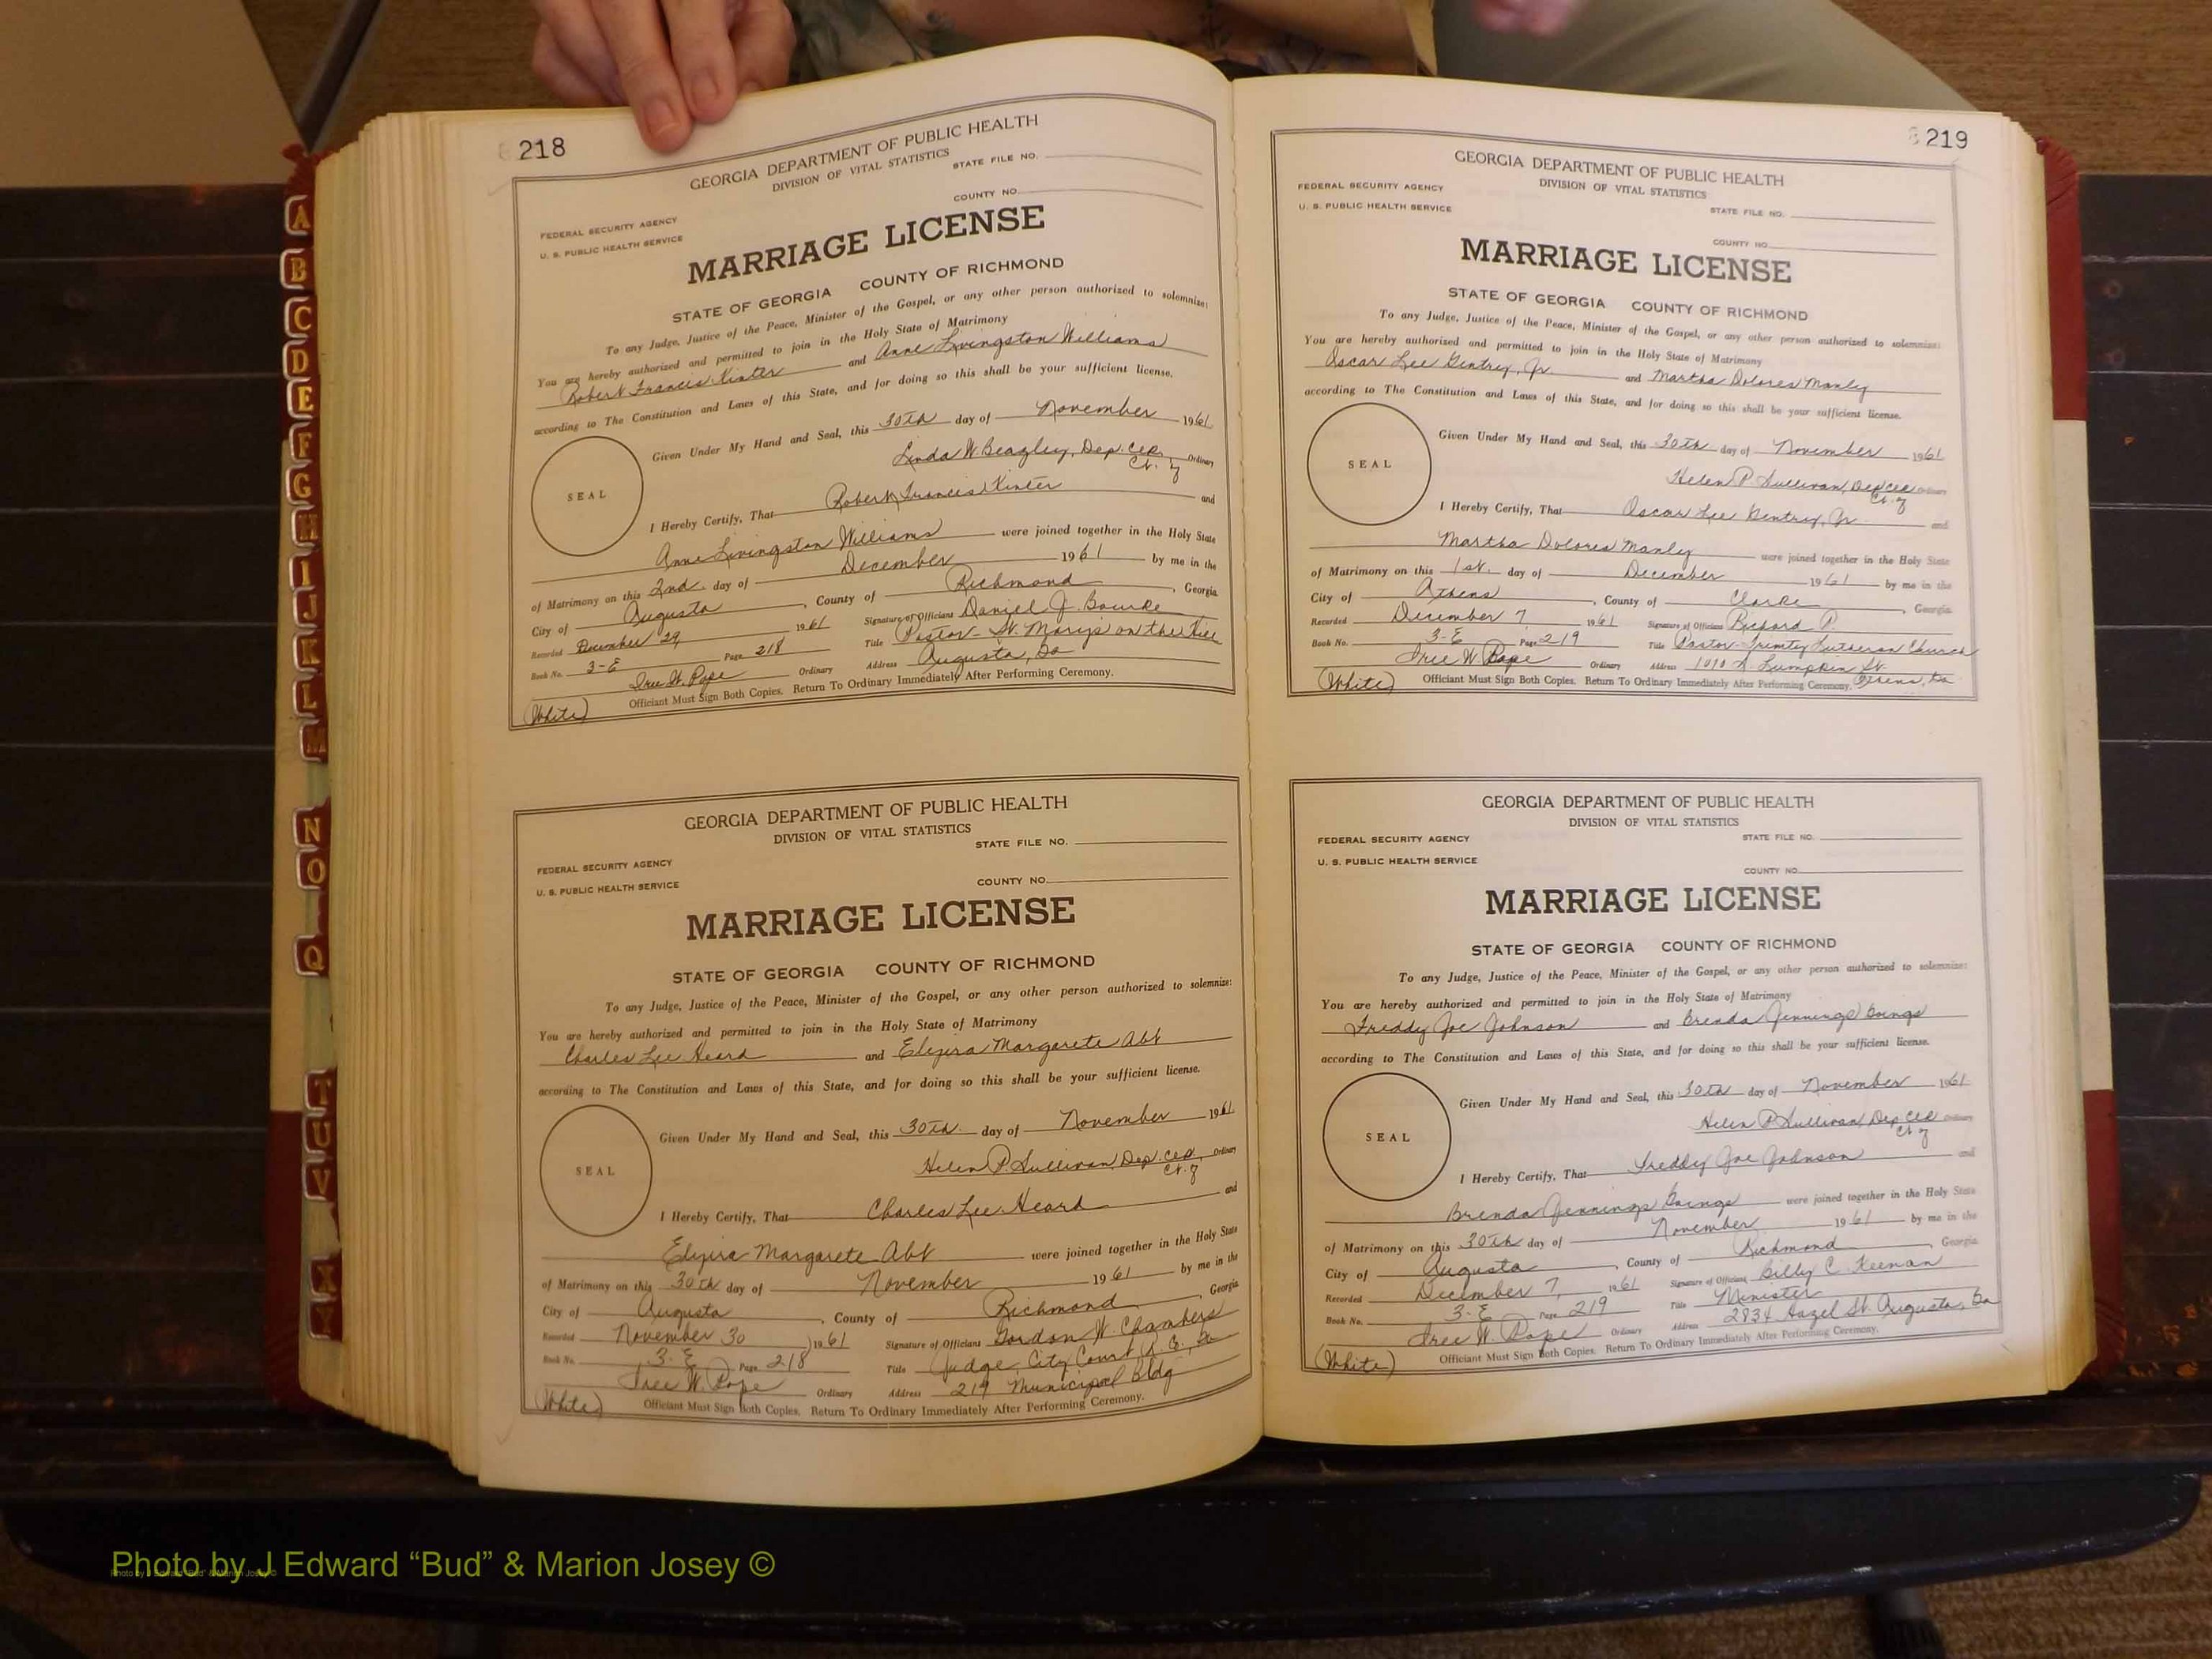 218
GEORGIA DEPARTMENT OF PUBLIC HEALTH
DIVISION OF VITAL STATISTICS
STATE FILE NO.
COUNTY NO.
FEDERAL SECURITY AGENCY
U. S. PUBLIC HEALTH SERVICE
MARRIAGE LICENSE
STATE OF GEORGIA COUNTY OF RICHMOND
To any Judge, Justice of the Peace, Minister of the Gospel, or any other person authorized to solemnize:
You are hereby authorized and permitted to join in the Holy State of Matrimony
Robert Francis Kinter and Anne Livingston Williams
according to The Constitution and Laws of this State, and for doing so this shall be your sufficient license.
Given Under My Hand and Seal, this 30th day of November 1961
SEAL
Linda W. Beazley, Dep. Clk. Ordinary
Ct. of
I Hereby Certify, That Robert Francis Kinter and
Anne Livingston Williams were joined together in the Holy State
of Matrimony on this 2nd. day of December 1961 by me in the
City of Augusta, County of Richmond, Georgia
Recorded December 29, 1961 Signature of Officiant Daniel J. Bourke
Book No. 3-E Page 218 Title Pastor - St. Mary's on the Hill
Iree W. Pope Ordinary Address Augusta, Ga
(White) Officiant Must Sign Both Copies. Return To Ordinary Immediately After Performing Ceremony.
GEORGIA DEPARTMENT OF PUBLIC HEALTH
DIVISION OF VITAL STATISTICS
STATE FILE NO.
FEDERAL SECURITY AGENCY
U. S. PUBLIC HEALTH SERVICE
COUNTY NO.
MARRIAGE LICENSE
STATE OF GEORGIA COUNTY OF RICHMOND
To any Judge, Justice of the Peace, Minister of the Gospel, or any other person authorized to solemnize:
You are hereby authorized and permitted to join in the Holy State of Matrimony
Charles Lee Heard and Margarete Abt
according to The Constitution and Laws of this State, and for doing so this shall be your sufficient license.
Given Under My Hand and Seal, this 30th. day of November 1961
SEAL
Helen P. Sullivan, Dep. Clk. Ordinary
Ct. of
I Hereby Certify, That Charles Lee Heard and
Margarete Abt were joined together in the Holy State
of Matrimony on this 30th day of November 1961 by me in the
City of Augusta, County of Richmond, Georgia
Recorded November 30, 1961 Signature of Officiant Gordon W. Chambers
Book No. 3-E Page 218 Title Judge, City Court, R. C., Ga
Iree W. Pope Ordinary Address 219 Municipal Bldg
(White) Officiant Must Sign Both Copies. Return To Ordinary Immediately After Performing Ceremony.
219
GEORGIA DEPARTMENT OF PUBLIC HEALTH
DIVISION OF VITAL STATISTICS
FEDERAL SECURITY AGENCY
U. S. PUBLIC HEALTH SERVICE
STATE FILE NO.
COUNTY NO.
MARRIAGE LICENSE
STATE OF GEORGIA COUNTY OF RICHMOND
To any Judge, Justice of the Peace, Minister of the Gospel, or any other person authorized to solemnize:
You are hereby authorized and permitted to join in the Holy State of Matrimony
Oscar Lee Gentry, Jr. and Martha Dolores Manly
according to The Constitution and Laws of this State, and for doing so this shall be your sufficient license.
Given Under My Hand and Seal, this 30th day of November 1961
SEAL
Helen P. Sullivan, Dep Clk Ordinary
Ct. of
I Hereby Certify, That Oscar Lee Gentry, Jr. and
Martha Dolores Manly were joined together in the Holy State
of Matrimony on this 1st. day of December 1961 by me in the
City of Athens, County of Clarke, Georgia
Recorded December 7, 1961 Signature of Officiant Richard P.
Book No. 3-E Page 219 Title Pastor-Trinity Lutheran Church
Iree W. Pope Ordinary Address 1010 S. Lumpkin St.
(White) Officiant Must Sign Both Copies. Return To Ordinary Immediately After Performing Ceremony. Athens, Ga
GEORGIA DEPARTMENT OF PUBLIC HEALTH
DIVISION OF VITAL STATISTICS
FEDERAL SECURITY AGENCY STATE FILE NO.
U. S. PUBLIC HEALTH SERVICE
COUNTY NO.
MARRIAGE LICENSE
STATE OF GEORGIA COUNTY OF RICHMOND
To any Judge, Justice of the Peace, Minister of the Gospel, or any other person authorized to solemnize:
You are hereby authorized and permitted to join in the Holy State of Matrimony
Freddy Joe Johnson and Brenda Jennings Goings
according to The Constitution and Laws of this State, and for doing so this shall be your sufficient license.
Given Under My Hand and Seal, this 30th day of November 1961
SEAL
Helen P. Sullivan, Dep Clk Ordinary
Ct. of
I Hereby Certify, That Freddy Joe Johnson and
Brenda Jennings Goings were joined together in the Holy State
of Matrimony on this 30th day of November 1961 by me in the
City of Augusta, County of Richmond, Georgia
Recorded December 7, 1961 Signature of Officiant Billy C. Keenan
Book No. 3-E Page 219 Title Minister
Iree W. Pope Ordinary Address 2834 Hazel St. Augusta, Ga
(White) Officiant Must Sign Both Copies. Return To Ordinary Immediately After Performing Ceremony.
A
B
C
D
E
F
G
H
I
J
K
L
M
N
O
Q
T
U
V
X
Y
Photo by J Edward “Bud” & Marion Josey ©
Photo by J Edward “Bud” & Marion Josey ©